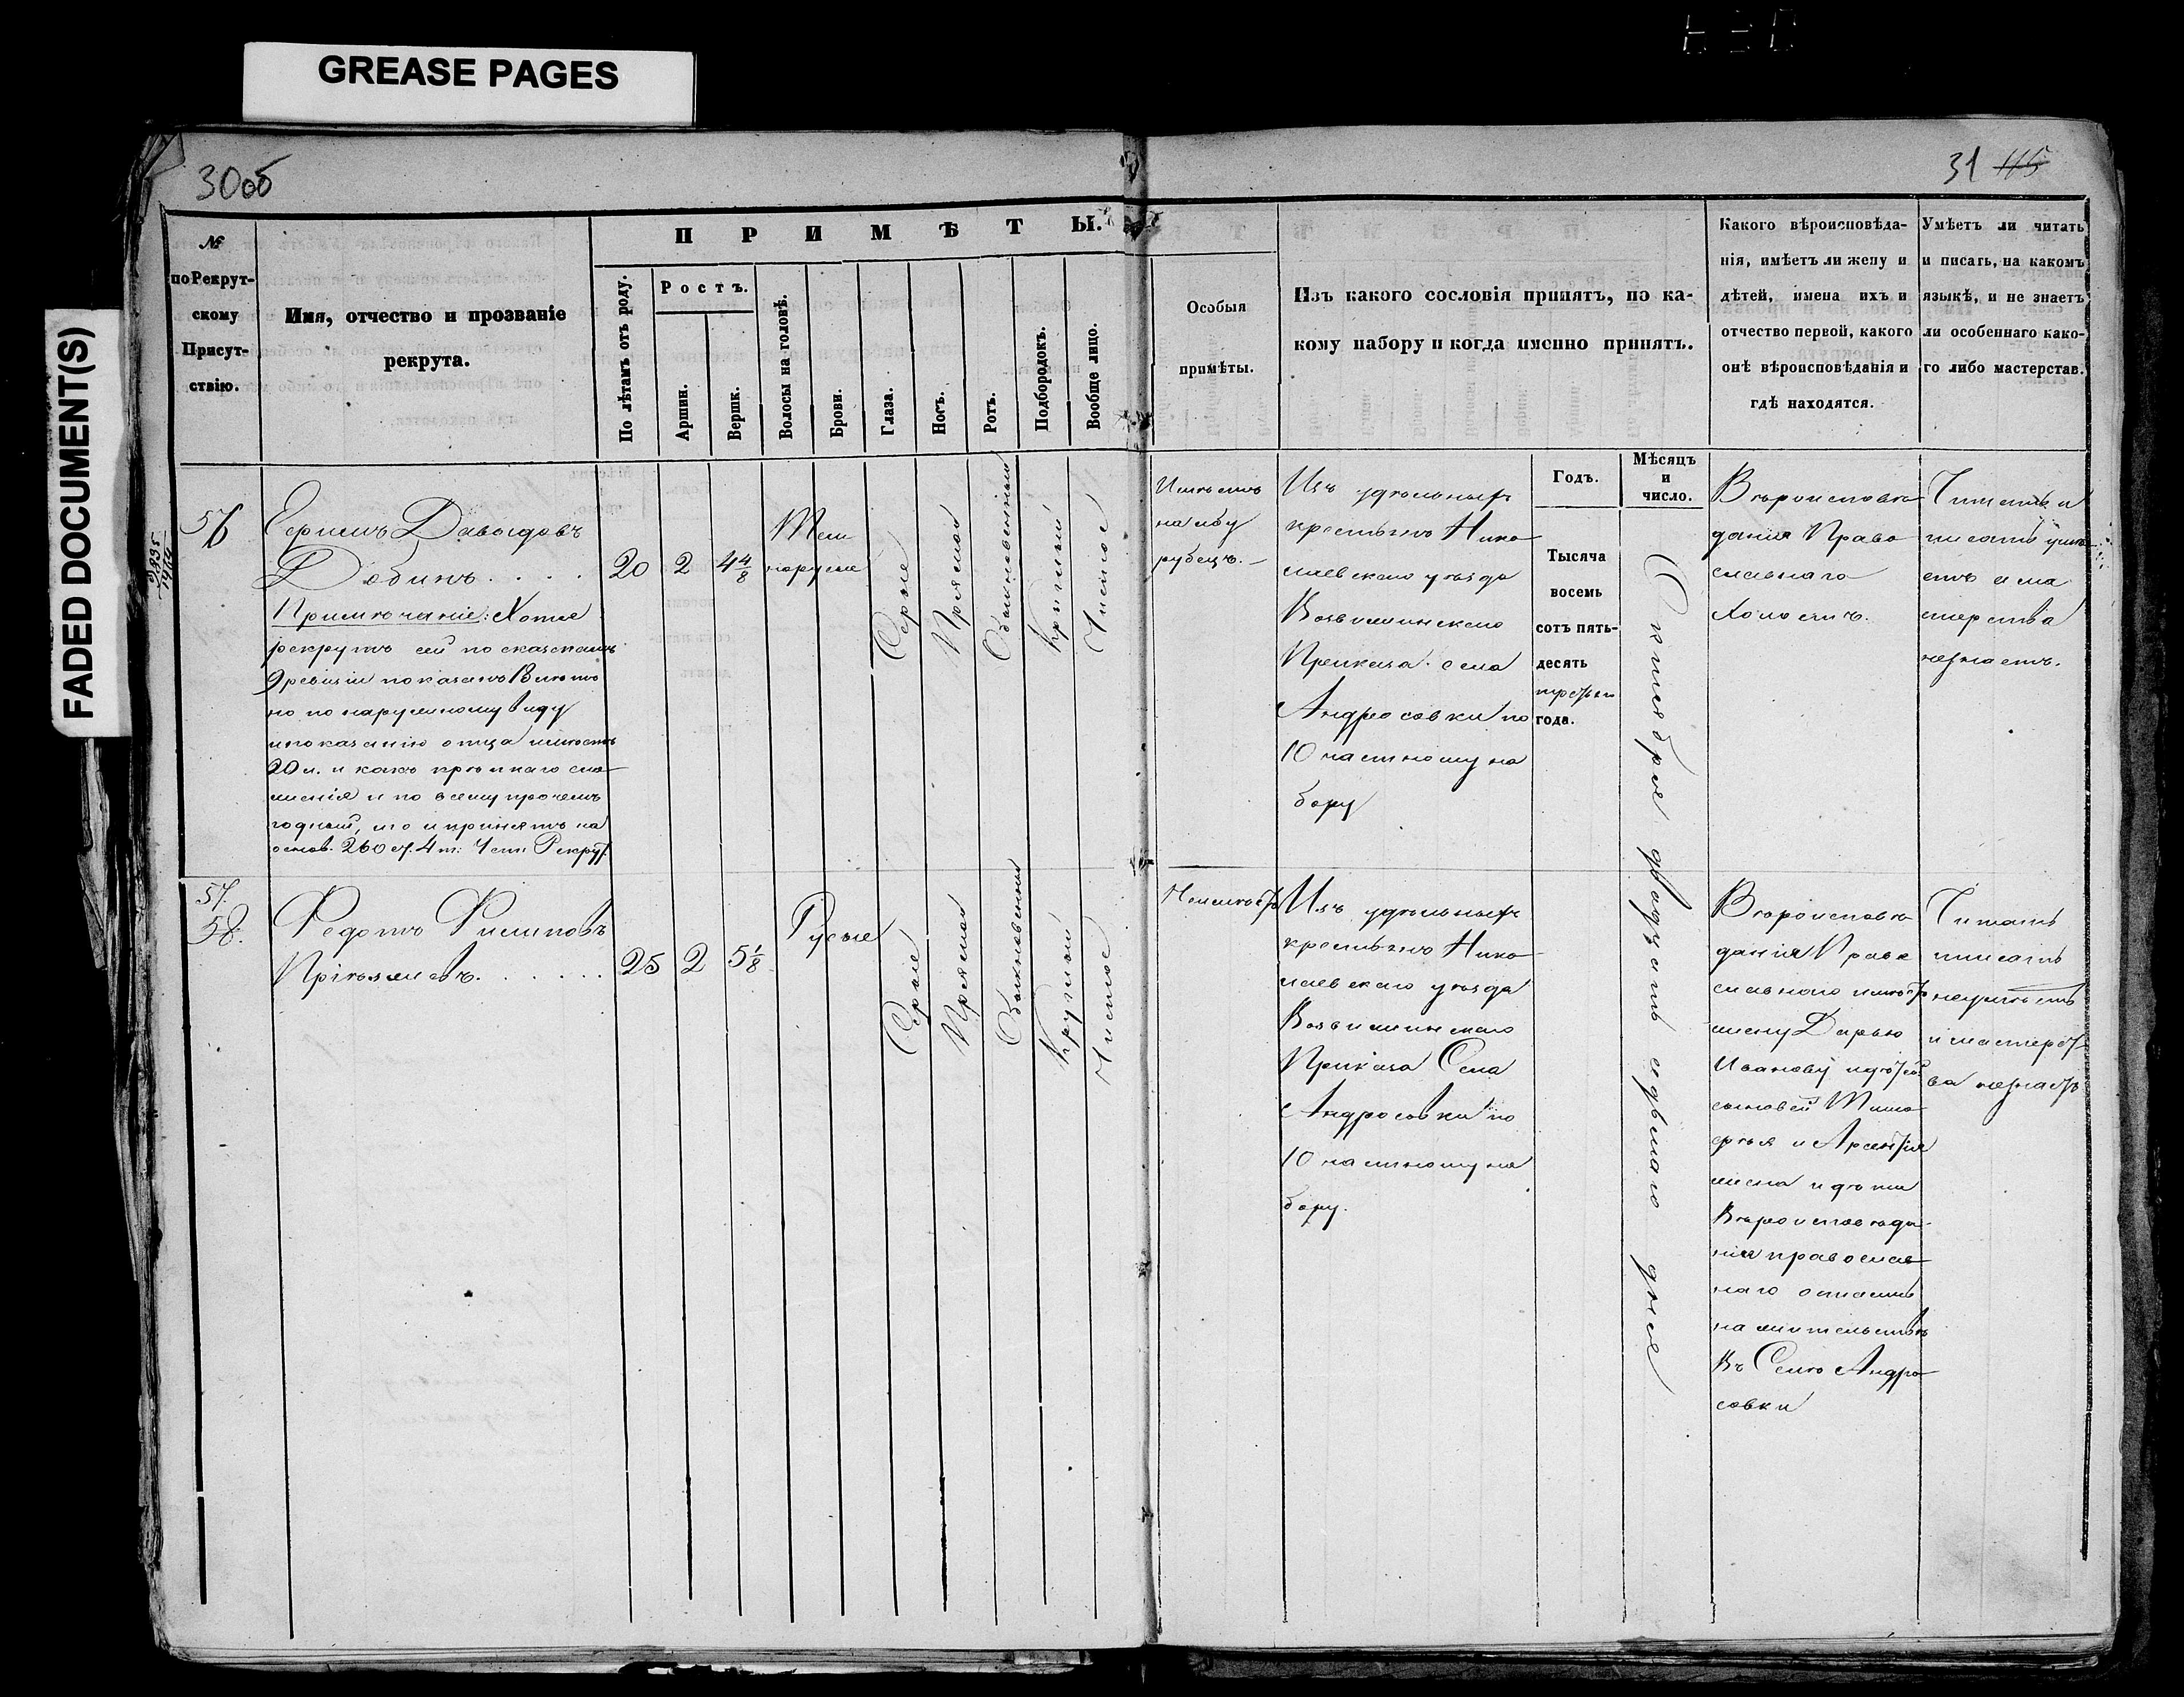 GREASE PAGES
FADED DOCUMENT(S)
30об
31 115
№
по Рекрут-
скому
Присут-
ствію.
Имя, отчество и прозваніе
рекрута.
ПРИМѢТЫ.
По лѣтамъ отъ роду.
Ростъ.
Аршин.
Вершк.
Волосы на головѣ.
Брови.
Глаза.
Носъ.
Ротъ.
Подбородокъ.
Вообще лицо.
Особыя
примѣты.
Изъ какого сословія принятъ, по ка-
кому набору и когда именно принятъ.
Годъ.
Мѣсяцъ
и
число.
Какого вѣроисповѣда-
нія, имѣетъ ли жену и
дѣтей, имена ихъ и
отчество первой, какого
онѣ вѣроисповѣданія и
гдѣ находятся.
Умѣетъ ли читать
и писать, на какомъ
языкѣ, и не знаетъ
ли особеннаго како-
го либо мастерства.
56
Давыдовъ
Добинъ....
Примѣчаніе: Хотя
рекрутъ сей по сказкамъ
9 ревизіи показанъ
но по наружному виду
и показанію отца имѣетъ
20 л. и какъ крѣпкаго сло-
женія и по всему прочему
годный, то и принятъ на
основ. 260 ст. 4 т. Рекрут.
20
2
4 4/8
Тем
норусые
Серые
Прямой
Обыкновенный
Круглый
Чистое
Имѣетъ
на лбу
рубецъ.
Изъ удѣльныхъ
крестьянъ Нико
лаевскаго уѣзда
Приказа села
Андросовки по
10 частному на
бору
Тысяча
восемь
сотъ пять-
десять
третьяго
года.
Октября двадцать седьмаго дня
Вѣроисповѣ
данія Право
славнаго
Холостъ.
Читать и
писать умѣ
етъ а ма
стерства
незнаетъ.
57.
58.
Федотъ Филиповъ
25
2
5 1/8
Русые
Серые
Прямой
Обыкновенный
Круглый
Чистое
Неимѣетъ
Изъ удѣльныхъ
крестьянъ Нико
лаевскаго уѣзда
Приказа Села
Андросовки по
10 частному на
бору.
Вѣроисповѣ
данія Право
славнаго имѣетъ
жену Дарью
Иванову и дѣтей
сыновей Тимо
фѣя и Арсентія
жена и дѣти
Вѣроисповѣда
нія православ
наго остались
на жительствѣ
Въ Селѣ Андро
совки
Читать
писать
неумѣетъ
и мастерст
ва незнаетъ